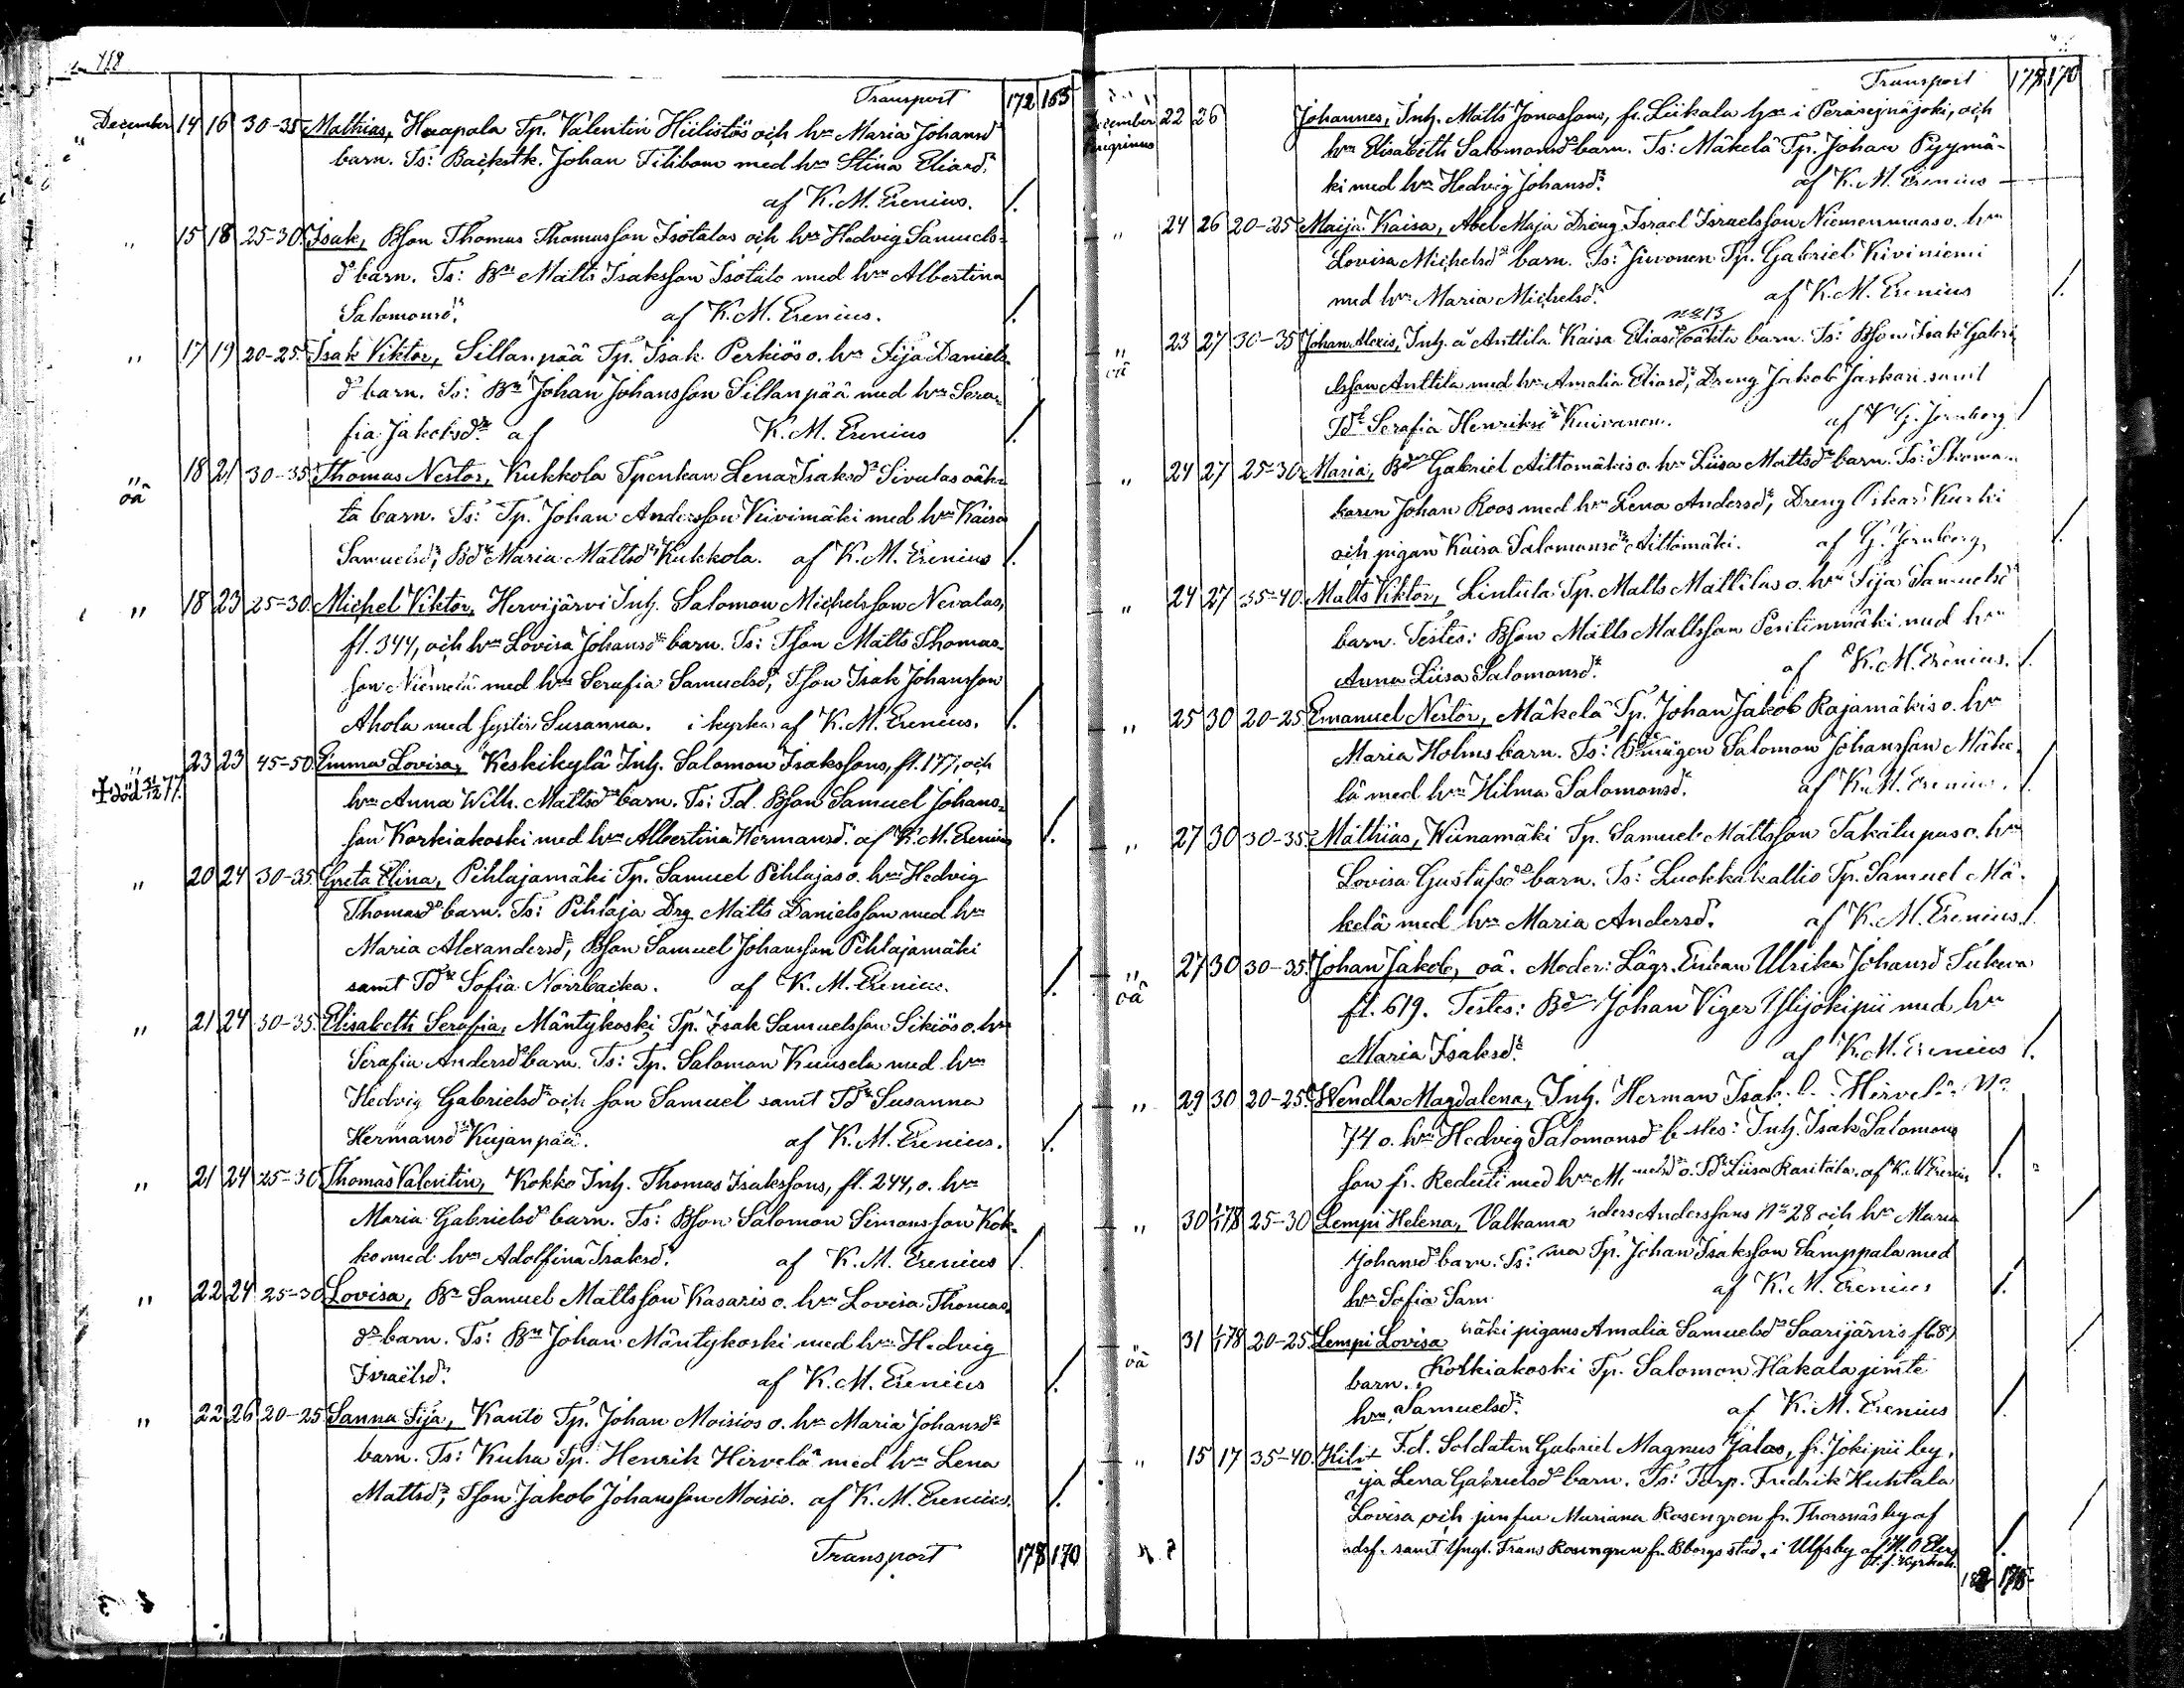 418
Transport 172 165
December 14 16 30-35 Mathias, Haapala Tp. Valentin Hiilistös och hn Maria Johansdr
barn. Ts: Backstk. Johan Filibom med hn Stina Eliasdr
af K. M. Erenius. /.
" 15 18 25-30. Isak, Bson Thomas Thomasson Isotalos och hn Hedvig Samuels-
dr barn. Ts: Bn Matts Isaksson Isotalo med hn Albertina
Salomonsdr. af K. M. Erenius. /.
" 17 19 20-25. Isak Viktor, Sillanpää Tp. Isak Perkiös o. hn Fija Daniels-
dr barn. Ts: Bn Johan Johansson Sillanpää med hn Sera-
fia Jakobsdr. af K. M. Erenius /.
" oä 18 21 30-35. Thomas Nestor, Kukkola Tpenkan Lena Isaksdr Sivulas oäk-
ta barn. Ts: Tp. Johan Andersson Kivimäki med hn Kaisa
Samuelsdr, Bdr Maria Mattsdr Kukkola. af K. M. Erenius /.
" 18 23 25-30. Michel Viktor, Hervijärvi Inh. Salomon Michelsson Nevalas,
fl. 344, och hn Lovisa Johansdr barn. Ts: Tson Matts Thomas-
son Niemelä med hn Serafia Samuelsdr, Tson Isak Johansson
Ahola med syster Susanna. i kyrka af K. M. Erenius. /.
" † död 77. 23 23 45-50. Emma Lovisa, Keskikylä Inh. Salomon Isakssons, fl. 177, och
hn Anna Wilh. Mattsdr barn. Ts: F.d. Bson Samuel Johans-
son Korkiakoski med hn Albertina Hermansdr. af K. M. Erenius /.
" 20 24 30-35. Greta Elina, Pihlajamäki Tp. Samuel Pihlajas o. hn Hedvig
Thomasdr barn. Ts: Pihlaja Drg Matts Danielsson med hn
Maria Alexandersdr, Bson Samuel Johansson Pihlajamäki
samt Tdr Sofia Norrbacka. af K. M. Erenius. /.
" 21 24 30-35. Elisabeth Serafia, Mäntykoski Tp. Isak Samuelsson Sikiös o. hn
Serafia Andersdr barn. Ts: Tp. Salomon Kuusela med hn
Hedvig Gabrielsdr och son Samuel samt Tdr Susanna
Hermansdr Kujanpää. af K. M. Erenius. /.
" 21 24 25-30 Thomas Valentin, Kokko Inh. Thomas Isakssons, fl. 244, o. hn
Maria Gabrielsdr barn. Ts: Bson Salomon Simonsson Kok-
ko med hn Adolfina Isaksdr. af K. M. Erenius /.
" 22 24 25-30 Lovisa, Bn Samuel Mattsson Kasaris o. hn Lovisa Thomas-
dr barn. Ts: Bn Johan Mäntykoski med hn Hedvig
Israelsdr. af K. M. Erenius /.
" 22 26 20-25 Sanna Fija, Kanto Tp. Johan Moisios o. hn Maria Johansdr
barn. Ts: Kuha Tp. Henrik Hirvelä med hn Lena
Mattsdr, Tson Jakob Johansson Moisio. af K. M. Erenius. /.
Transport 178 170
Transport 178 170
December 22 26 Johannes, Inh. Matts Jonassons, fr. Liikala by i Peräsejnäjoki, och
peregrinus hn Elisabeth Salomonsdr barn. Ts: Mäkelä Tp. Johan Pyymä-
ki med hn Hedvig Johansdr. af K. M. Erenius
" 24 26 20-25 Maija Kaisa, Abel Maja Dreng Israel Israelsson Niemenmaas o. hn
Lovisa Michelsdr barn. Ts: Siwonen Tp. Gabriel Kiviniemi
med hn Maria Michelsdr. af K. M. Erenius /.
" oä 23 27 30-35 Johan Alexis, Inh. å Anttila Kaisa Eliasdr oäkta barn. Ts: Bson Isak Gabri-
elsson Anttila med hn Amalia Eliasdr, Dreng Jakob Jaskari samt
Tdr Serafia Henriksdr Kuivanen. af G. Jernberg /
" 24 27 25-30. Maria, Bn Gabriel Aittomäkis o. hn Liisa Mattsdr barn. Ts: Skoma-
karen Johan Roos med hn Lena Andersdr, Dreng Oskar Kurki
och pigan Kaisa Salomonsdr Aittomäki. af G. Jernberg. /.
" 24 27 35-40. Matts Viktor, Lintula Tp. Matts Mattilas o. hn Fija Samuelsdr
barn. Testes: Bson Matts Mattsson Pentinmäki med hn
Anna Liisa Salomonsdr. af K. M. Erenius. /.
" 25 30 20-25. Emanuel Nestor, Mäkelä Tp. Johan Jakob Rajamäkis o. hn
Maria Holms barn. Ts: Bmågen Salomon Johansson Mäke-
lä med hn Hilma Salomonsdr. af K. M. Erenius. /.
" 27 30 30-35. Mathias, Wiinamäki Tp. Samuel Mattsson Takalupas o. hn
Lovisa Gustafsdr barn. Ts: Luokkakallio Tp. Samuel Mä-
kelä med hn Maria Andersdr. af K. M. Erenius. /.
" oä 27 30 30-35. Johan Jakob, oä. Moder: Lägr. Enkan Ulrika Johansdr
fl. 619. Testes: Bn Johan Viger Ylijokipii med hn
Maria Isaksdr. af K. M. Erenius /.
" 29 30 20-25. Wendla Magdalena, Inh. Herman Isak Hirvelä No
74 o. hn Hedvig Salomonsdr b stes: Inh. Isak Salomons
son fr. Reduti med hn M o. Tdr Liisa Rantala. af K. M. Erenius /.
" 30 1/1 78 25-30 Lempi Helena, Valkama nders Anderssons No 28 och hn Maria
Johansdr barn. Ts: ma Tp. Johan Isaksson Samppala med
hn Sofia Sam af K. M. Erenius /.
" oä 31 1/1 78 20-25. Lempi Lovisa mäki pigans Amalia Samuelsdr Saarijärvis
barn. Korkiakoski Tp. Salomon Hakala jemte
hn Samuelsdr. af K. M. Erenius /.
" 15 17 35-40. F.d. Soldaten Gabriel Magnus Jalas, fr. Jokipii by,
ija Lena Gabrielsdr barn. Ts: Torp. Fredrik Huhtala
Lovisa och jungfru Mariana Rosengren fr. Thorsnäs by af
samt Yngl. Frans Rosengren fr. Bborgs stad, i Ulfsby af /.
178